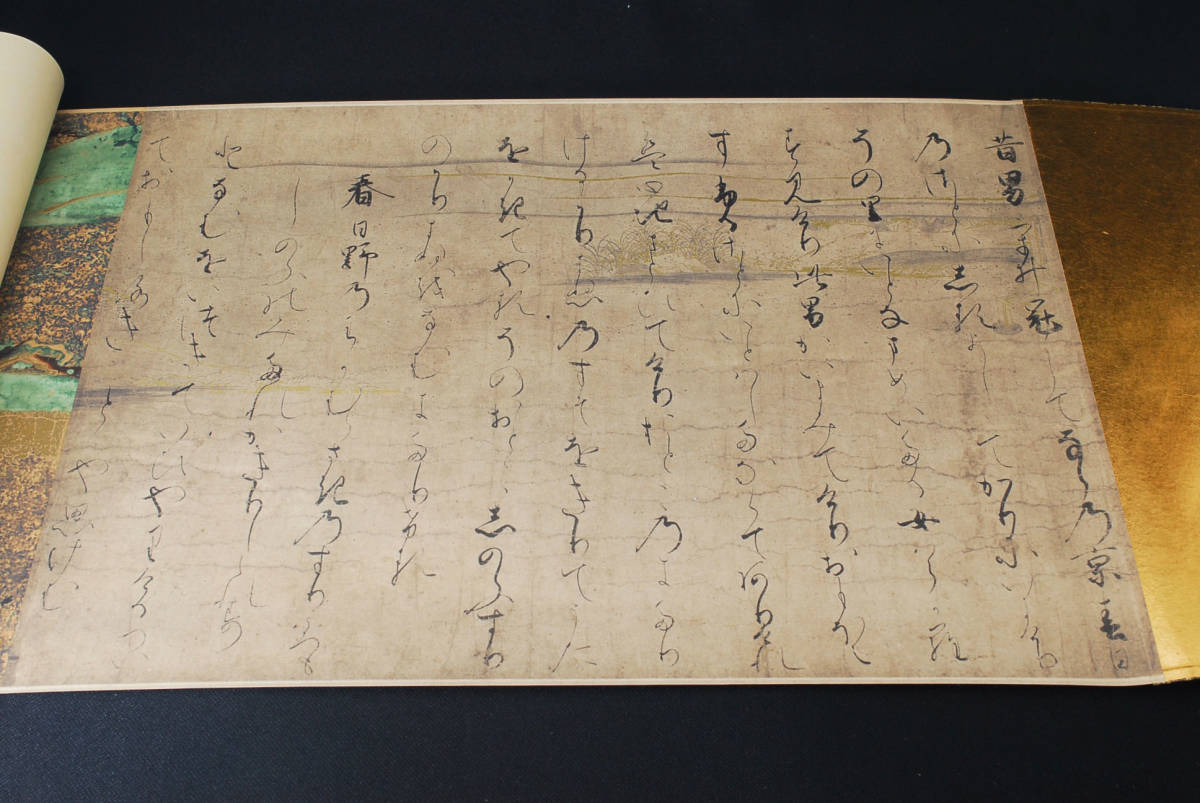 昔男うゐ冠してなら乃京春日
乃さとに志るよししてかりにいにけり
その里にいとなまめいたる女はらから
すみけり此男かいまみてけりおもほえ
すふるさとにいとはしたなくてありけれ
は心地まとひてけりおとこ乃きたり
けるかり衣乃すそをきりてうた
をかきてやるそのおとこ志のふすり
のかりきぬをなむきたりける
春日野乃わかむらさき乃すりころも
しのふのみたれかきりしられす
となむをいつきていひやりけるつい
ておもしろきことゝや思けむ